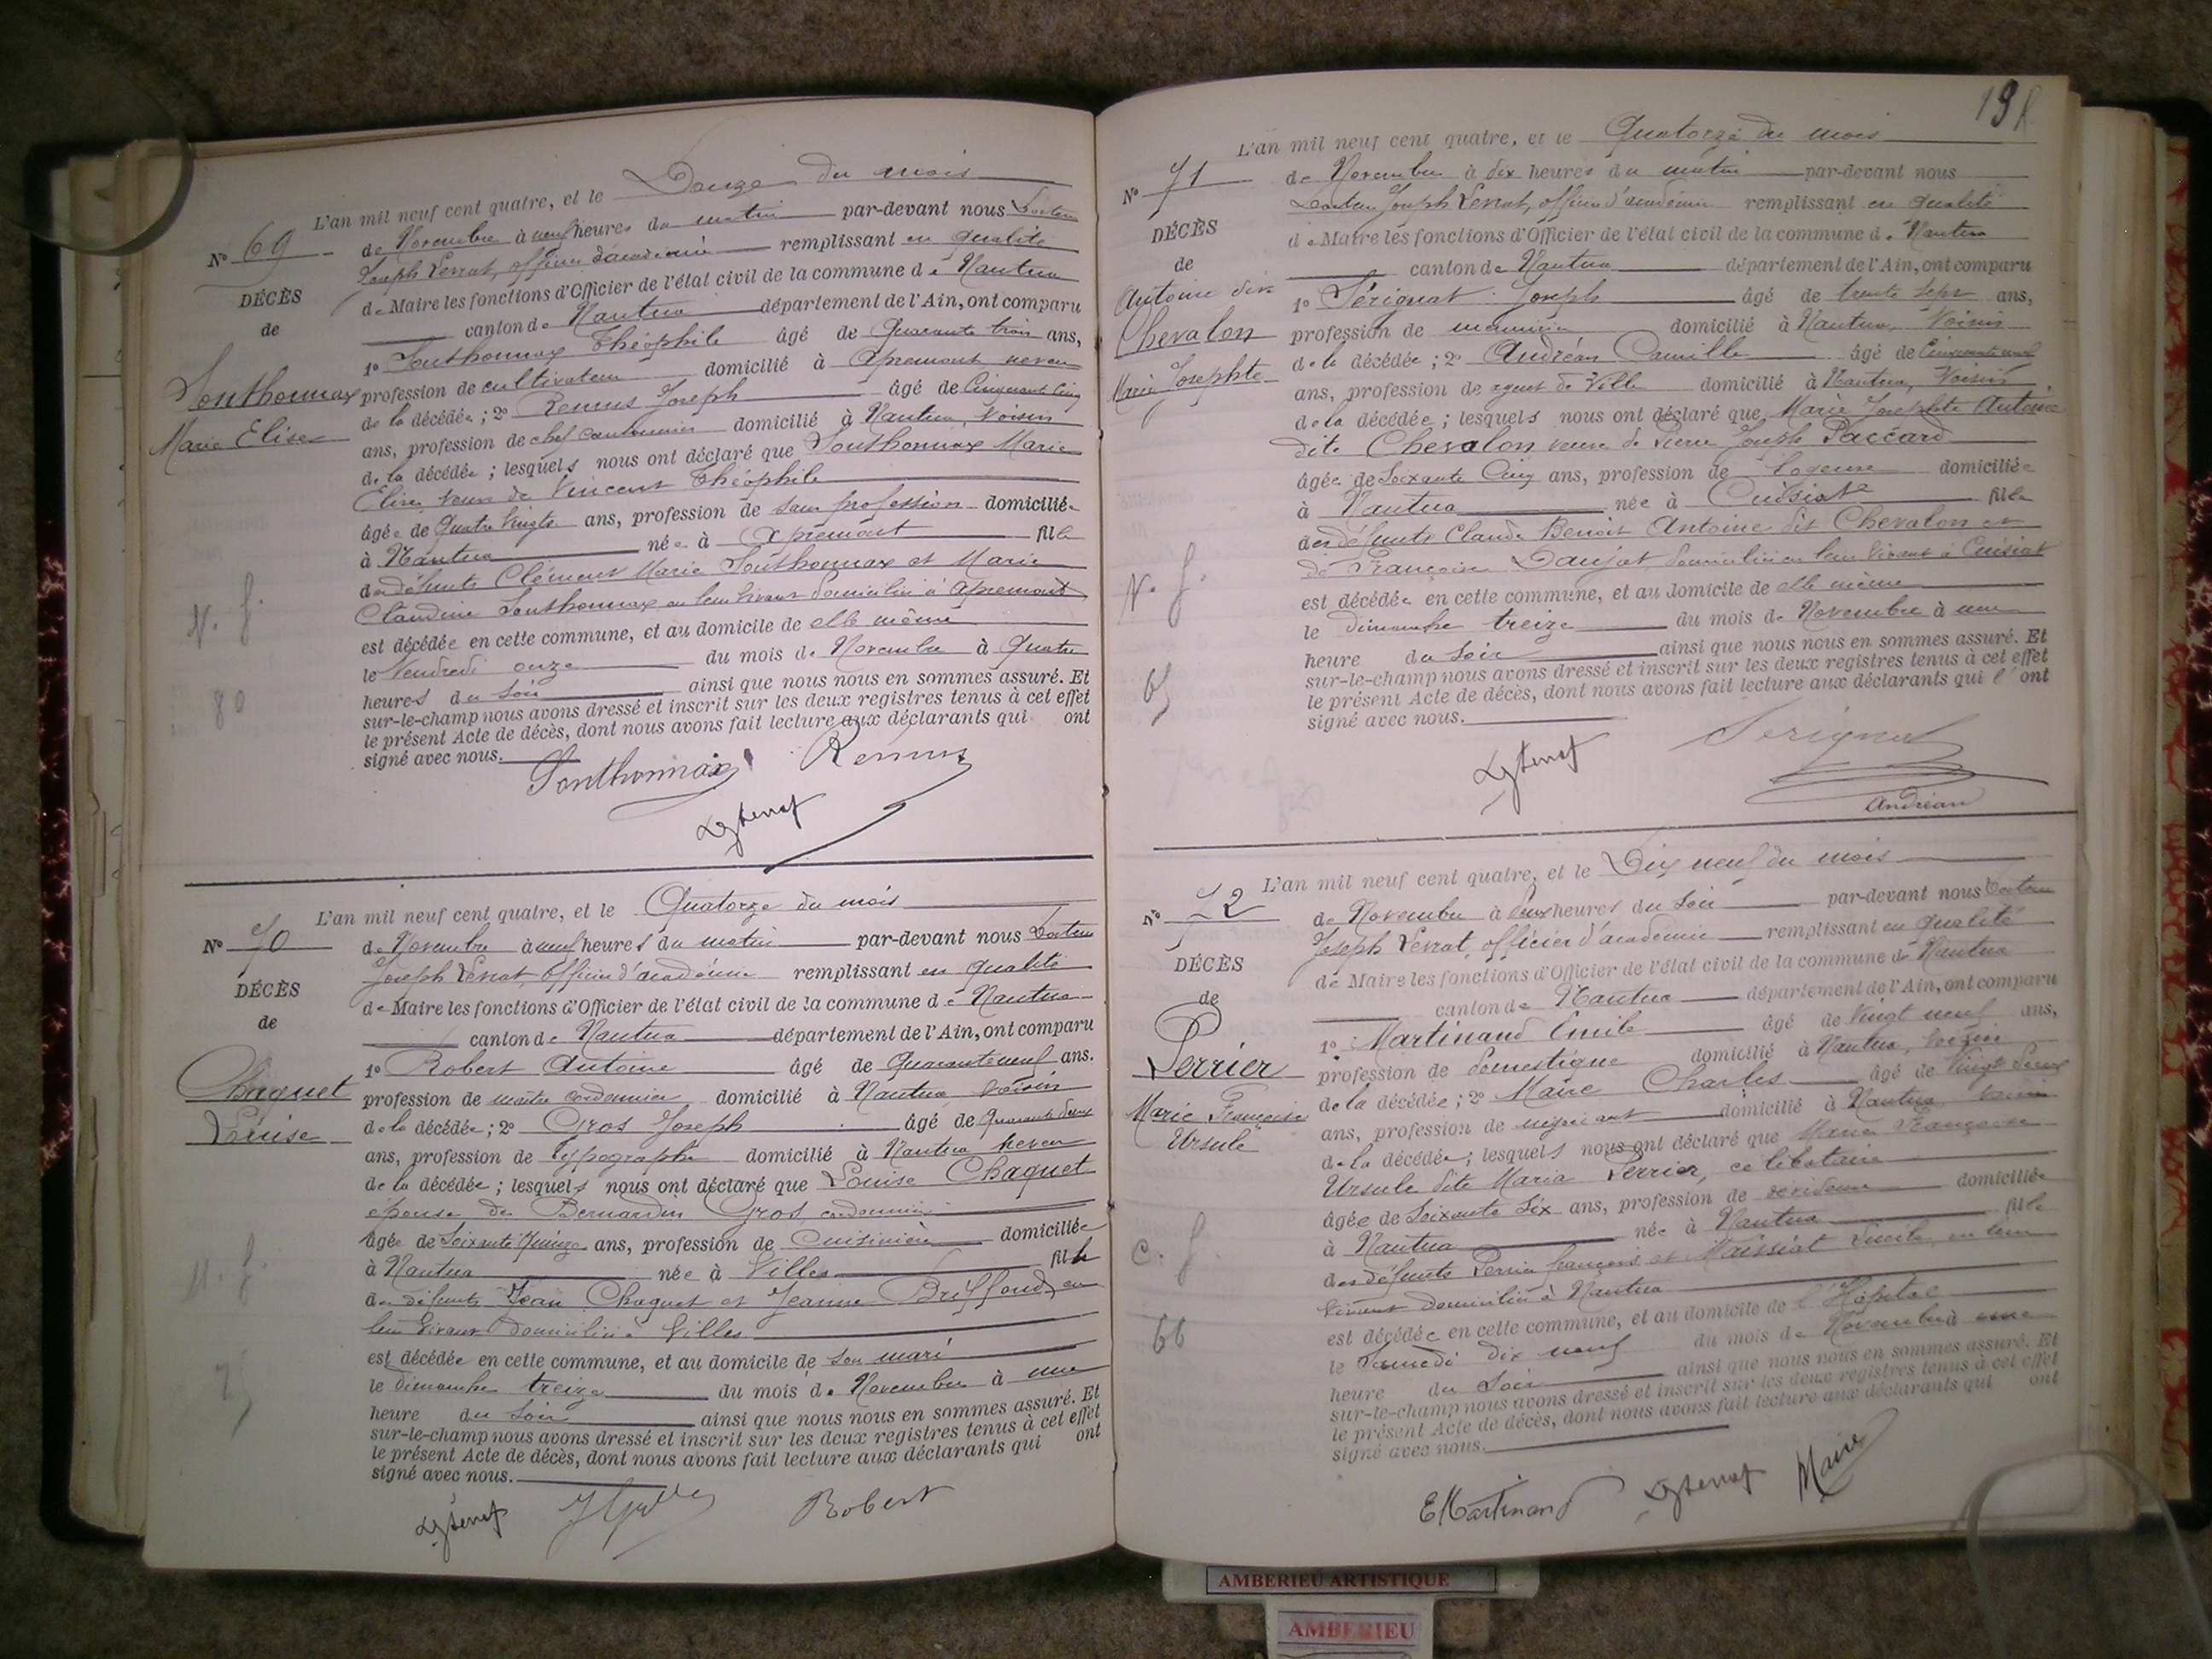 L'an mil neuf cent quatre, et le Douze du mois
N° 69
de Novembre à neuf heures du matin par-devant nous Docteur
Joseph Levrat, officier d'académie remplissant en qualité
DÉCÈS
de Maire les fonctions d'Officier de l'état civil de la commune de Nantua
de
canton de Nantua département de l'Ain, ont comparu
1° Sonthonnax Théophile âgé de Quarante trois ans,
Sonthonnax
profession de cultivateur domicilié à Apremont neveu
Marie Elise
de la décédée ; 2° Remus Joseph âgé de Cinquante Cinq
ans, profession de chef cantonnier domicilié à Nantua, voisin
de la décédée ; lesquels nous ont déclaré que Sonthonnax Marie
Elise veuve de Vincent Théophile
âgée de Quatre Vingts ans, profession de sans profession domiciliée
à Nantua née à Apremont fille
des défunts Clément Marie Sonthonnax et Marie
Claudine Sonthonnax en leur vivant domiciliés à Apremont
est décédée en cette commune, et au domicile de elle même
le Vendredi onze du mois de Novembre à Quatre
heures du soir ainsi que nous nous en sommes assuré. Et
sur-le-champ nous avons dressé et inscrit sur les deux registres tenus à cet effet
le présent Acte de décès, dont nous avons fait lecture aux déclarants qui ont
signé avec nous.
V. f.
80
Sonthonnax Remus
L'an mil neuf cent quatre, et le Quatorze du mois
N° 70
de Novembre à neuf heures du matin par-devant nous Docteur
Joseph Levrat, officier d'académie remplissant en qualité
DÉCÈS
de Maire les fonctions d'Officier de l'état civil de la commune de Nantua
de
canton de Nantua département de l'Ain, ont comparu
1° Robert Antoine âgé de Quarante neuf ans.
Chaquet
profession de maître cordonnier domicilié à Nantua voisin
Louise
de la décédée ; 2° Gros Joseph âgé de Quarante deux
ans, profession de typographe domicilié à Nantua neveu
de la décédée ; lesquels nous ont déclaré que Louise Chaquet
épouse de Bernardin Gros, cordonnier
âgée de Soixante Quinze ans, profession de Cuisinière domiciliée
à Nantua née à Villes fille
des défunts Jean Chaquet et Jeanne Briffoud, en
leur vivant domiciliés à Villes
est décédée en cette commune, et au domicile de son mari
le dimanche treize du mois de Novembre à une
heure du soir ainsi que nous nous en sommes assuré. Et
sur-le-champ nous avons dressé et inscrit sur les deux registres tenus à cet effet
le présent Acte de décès, dont nous avons fait lecture aux déclarants qui ont
signé avec nous.
M. f.
75
Robert
L'an mil neuf cent quatre, et le Quatorze du mois
N° 71
de Novembre à dix heures du matin par-devant nous
Docteur Joseph Levrat, officier d'académie remplissant en qualité
DÉCÈS
de Maire les fonctions d'Officier de l'état civil de la commune de Nantua
de
canton de Nantua département de l'Ain, ont comparu
Antoine dite
1° Sérignat Joseph âgé de trente sept ans,
Chevalon
profession de menuisier domicilié à Nantua, Voisin
Marie Josephte
de la décédée ; 2° Andréan Camille âgé de Cinquante neuf
ans, profession de agent de Ville domicilié à Nantua, Voisin
de la décédée ; lesquels nous ont déclaré que Marie Josephte Antoine
dite Chevalon veuve de Pierre Joseph Paccard
âgée de Soixante Cinq ans, profession de logeuse domiciliée
à Nantua née à Cuisiat fille
des défunts Claude Benoit Antoine dit Chevalon et
de Françoise Daujat domiciliés en leur vivant à Cuisiat
est décédée en cette commune, et au domicile de elle même
le dimanche treize du mois de Novembre à une
heure du soir ainsi que nous nous en sommes assuré. Et
sur-le-champ nous avons dressé et inscrit sur les deux registres tenus à cet effet
le présent Acte de décès, dont nous avons fait lecture aux déclarants qui l'ont
signé avec nous.
V. f.
65
Serignat
Andréan
L'an mil neuf cent quatre, et le Dix neuf du mois
N° 72
de Novembre à deux heures du soir par-devant nous Docteur
Joseph Levrat, officier d'académie remplissant en qualité
DÉCÈS
de Maire les fonctions d'Officier de l'état civil de la commune de Nantua
de
canton de Nantua département de l'Ain, ont comparu
1° Martinand Emile âgé de Vingt neuf ans,
Perrier
profession de domestique domicilié à Nantua, voisin
Marie Françoise
de la décédée ; 2° Maire Charles âgé de Vingt deux
Ursule
ans, profession de négociant domicilié à Nantua voisin
de la décédée ; lesquels nous ont déclaré que Marie Françoise
Ursule dite Maria Perrier, célibataire
âgée de Soixante Six ans, profession de domiciliée
à Nantua née à Nantua fille
des défunts Perrier françois et Maissiat Lucile, en leur
vivant domiciliés à Nantua
est décédée en cette commune, et au domicile de l'Hôpital
le Samedi dix neuf du mois de Novembre à une
heure du soir ainsi que nous nous en sommes assuré. Et
sur-le-champ nous avons dressé et inscrit sur les deux registres tenus à cet effet
le présent Acte de décès, dont nous avons fait lecture aux déclarants qui ont
signé avec nous.
C. f.
66
E Martinand Maire
AMBERIEU ARTISTIQUE
AMBERIEU